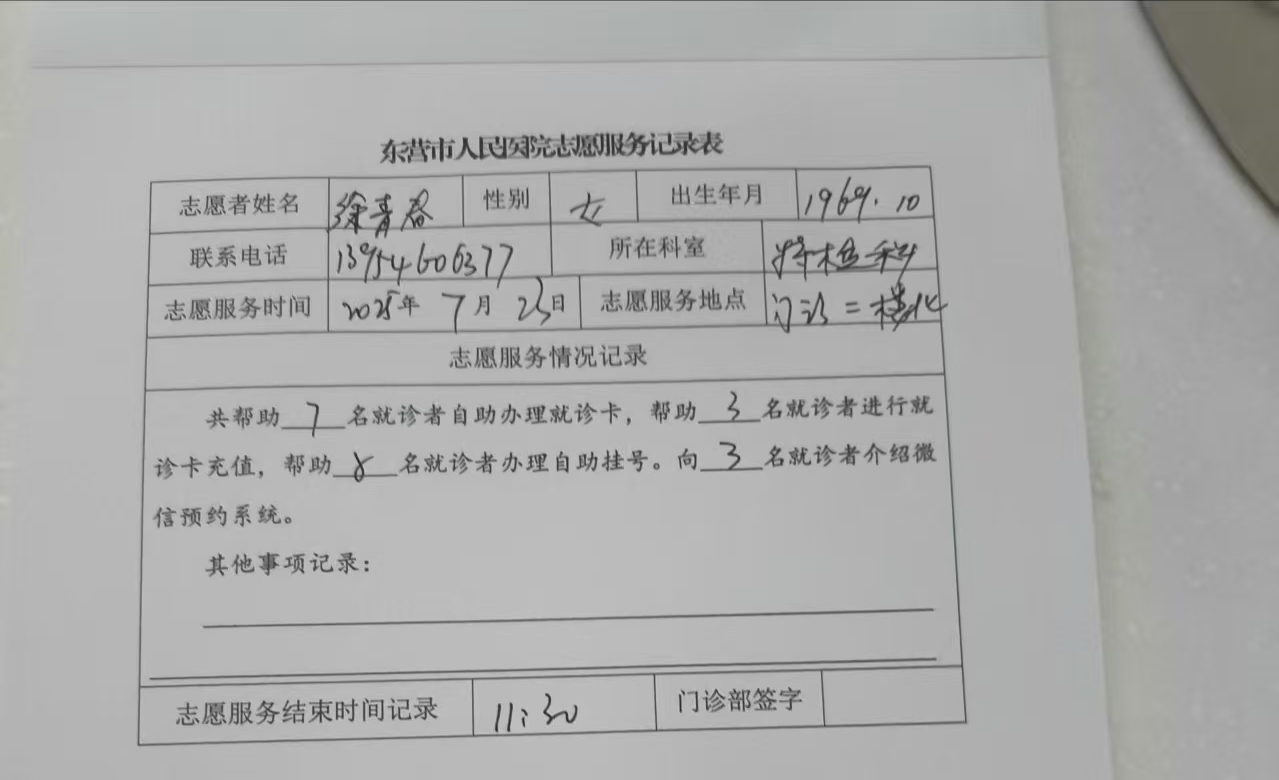 东营市人民医院志愿服务记录表
志愿者姓名 徐青春 性别 女 出生年月 1969.10
联系电话 13954606377 所在科室 特检科
志愿服务时间 2025年 7月 23日 志愿服务地点 门诊二楼北
志愿服务情况记录
共帮助 7 名就诊者自助办理就诊卡，帮助 3 名就诊者进行就
诊卡充值，帮助 8 名就诊者办理自助挂号。向 3 名就诊者介绍微
信预约系统。
其他事项记录：
志愿服务结束时间记录 11:30 门诊部签字